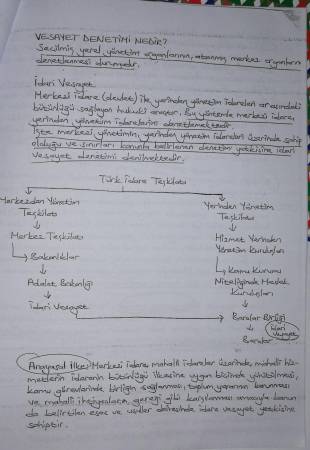 VESAYET DENETİMİ NEDİR?
Seçilmiş yerel yönetim organlarının, atanmış merkez organlarca
denetlenmesi durumudur.
İdari Vesayet
Merkezi idare (devlet) ile yerinden yönetim idareleri arasındaki
bütünlüğü sağlayan hukuki araçtır. Bu yöntemle merkezi idare,
yerinden yönetim idarelerini denetlemektedir.
İşte merkezi yönetimin, yerinden yönetim idareleri üzerinde sahip
olduğu ve sınırları kanunla belirlenen denetim yetkisine idari
vesayet denetimi denilmektedir.
Türk İdare Teşkilatı
Merkezden Yönetim
Teşkilatı
Yerinden Yönetim
Teşkilatı
Merkez Teşkilatı
Hizmet Yerinden
Yönetim Kuruluşları
Bakanlıklar
Kamu Kurumu
Niteliğinde Meslek
Kuruluşları
Adalet Bakanlığı
İdari Vesayet
Barolar Birliği
İdari
Vesayet
Barolar
Anayasal İlke: Merkezi idare, mahalli idareler üzerinde, mahalli hiz-
metlerin idarenin bütünlüğü ilkesine uygun biçimde yürütülmesi,
kamu görevlerinde birliğin sağlanması, toplum yararının korunması
ve mahalli ihtiyaçların gereği gibi karşılanması amacıyla kanun
da belirtilen esas ve usuller dairesinde idare vesayet yetkisine
sahiptir.